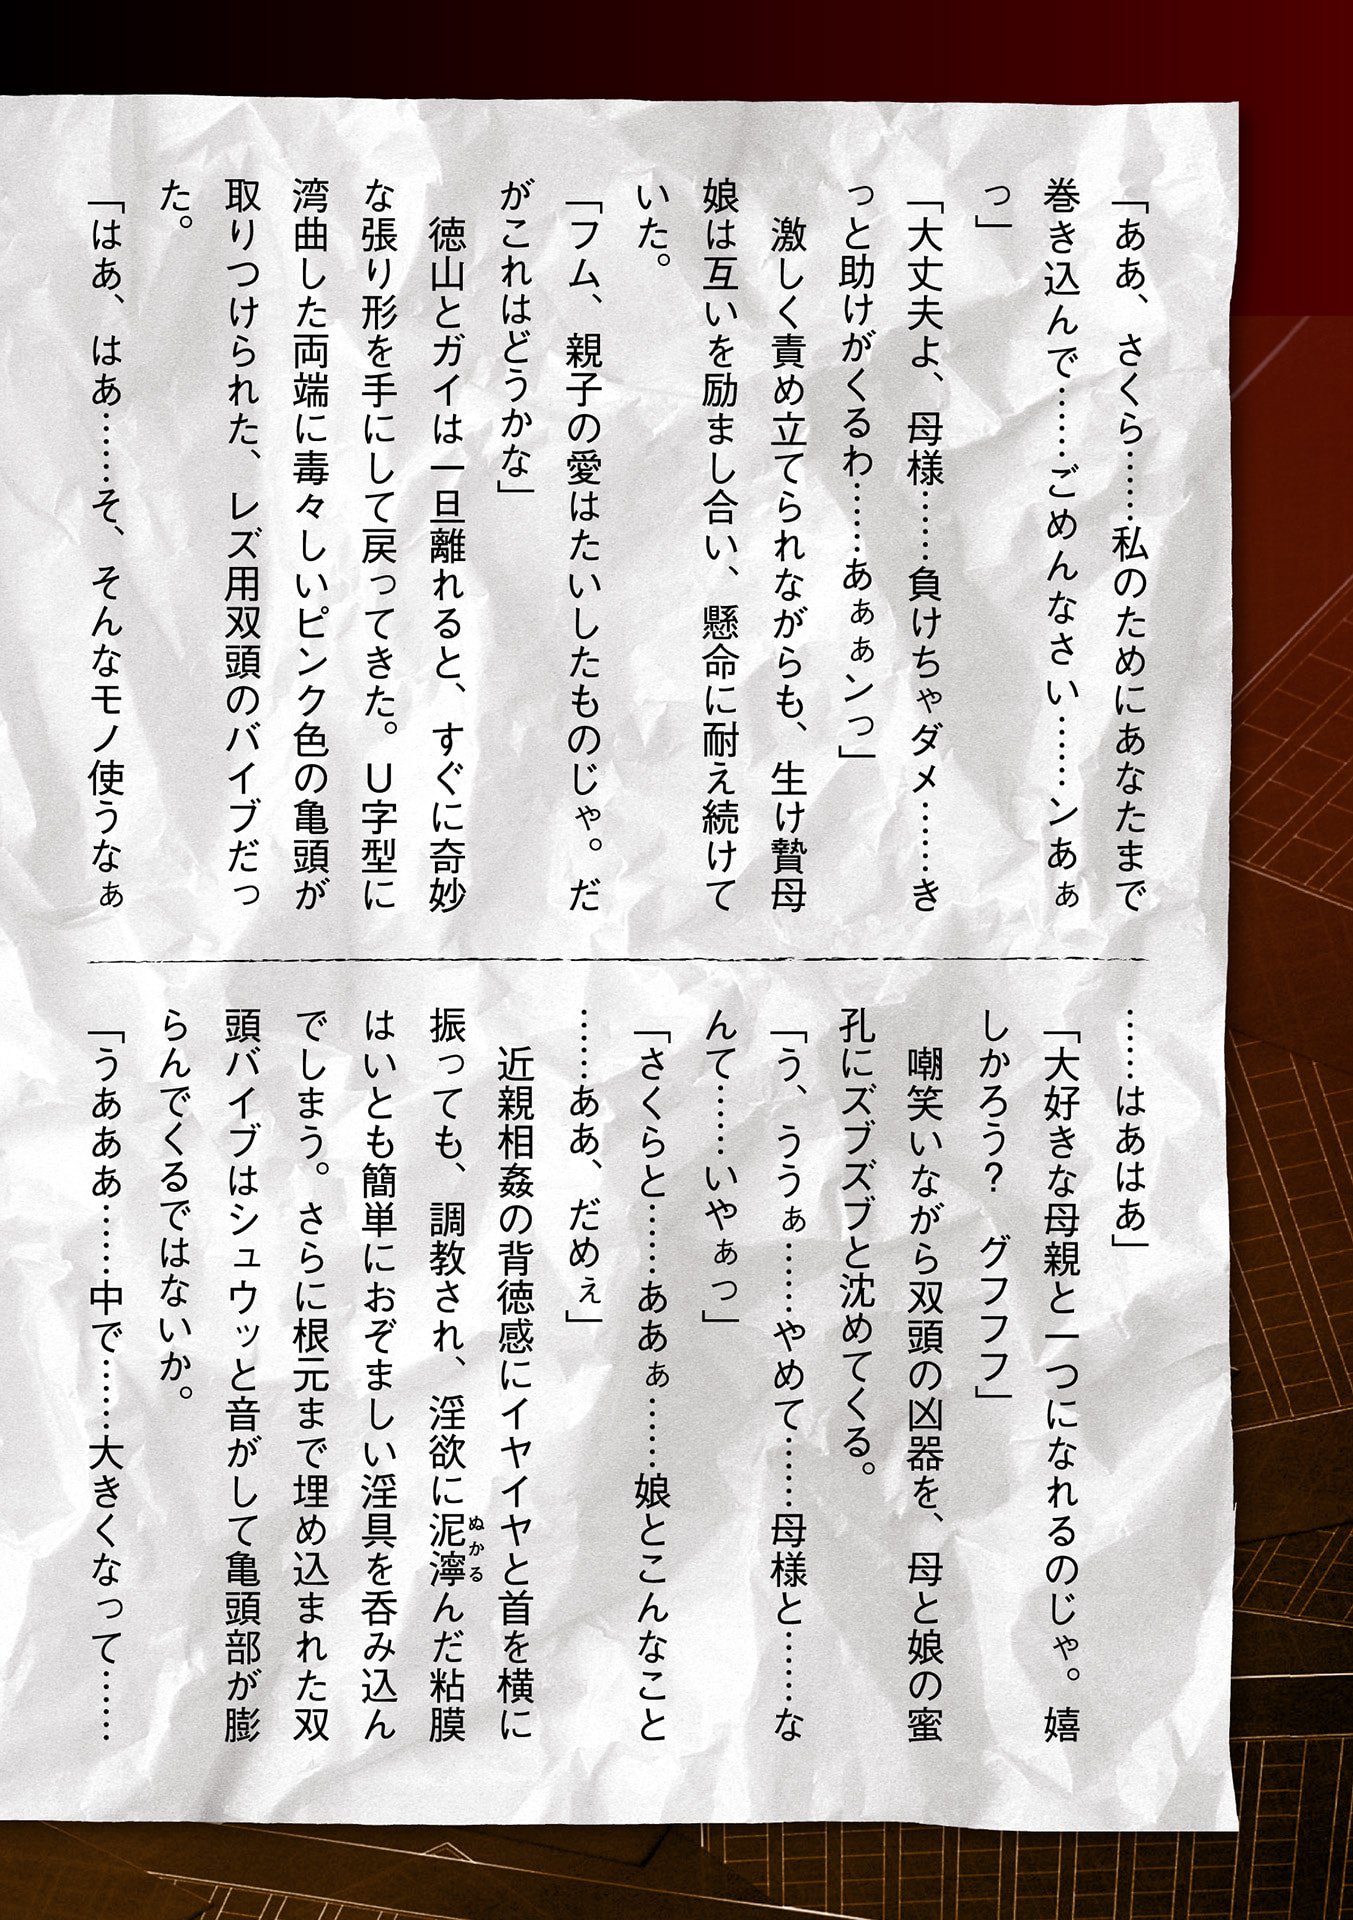 「ああ、さくら……私のためにあなたまで
巻き込んで……ごめんなさい……ンあぁ
っ」
「大丈夫よ、母様……負けちゃダメ……き
っと助けがくるわ……あぁぁンっ」
激しく責め立てられながらも、生け贄母
娘は互いを励まし合い、懸命に耐え続けて
いた。
「フム、親子の愛はたいしたものじゃ。だ
がこれはどうかな」
徳山とガイは一旦離れると、すぐに奇妙
な張り形を手にして戻ってきた。U字型に
湾曲した両端に毒々しいピンク色の亀頭が
取りつけられた、レズ用双頭のバイブだっ
た。
「はあ、はあ……そ、そんなモノ使うなぁ
……はあはあ」
「大好きな母親と一つになれるのじゃ。嬉
しかろう？　グフフフ」
嘲笑いながら双頭の凶器を、母と娘の蜜
孔にズブズブと沈めてくる。
「う、ううぁ……やめて……母様と……な
んて……いやぁっ」
「さくらと……ああぁ……娘とこんなこと
……ああ、だめぇ」
近親相姦の背徳感にイヤイヤと首を横に
振っても、調教され、淫欲に泥濘んだ粘膜
ぬかる
はいとも簡単におぞましい淫具を呑み込ん
でしまう。さらに根元まで埋め込まれた双
頭バイブはシュウッと音がして亀頭部が膨
らんでくるではないか。
「うあああ……中で……大きくなって……